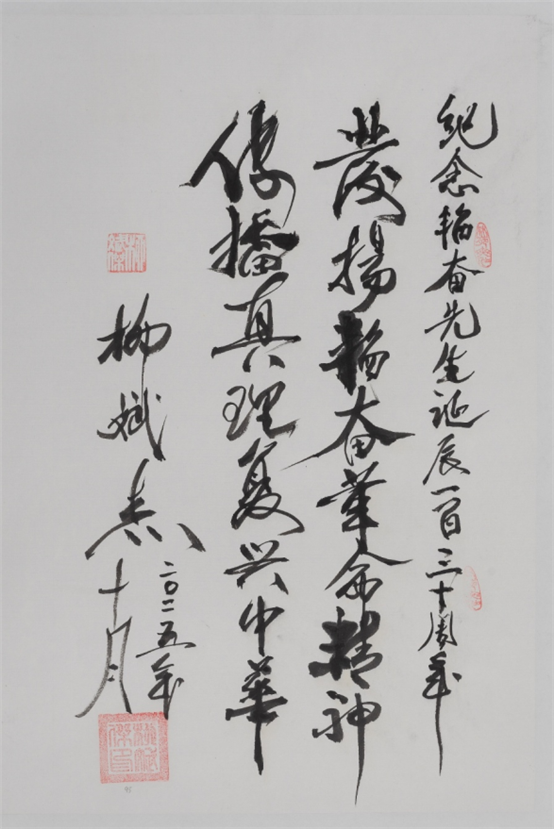 纪念韬奋先生诞辰一百三十周年
發揚韜奋革命精神
传播真理复兴中華
柳斌杰
二〇二五年
十月